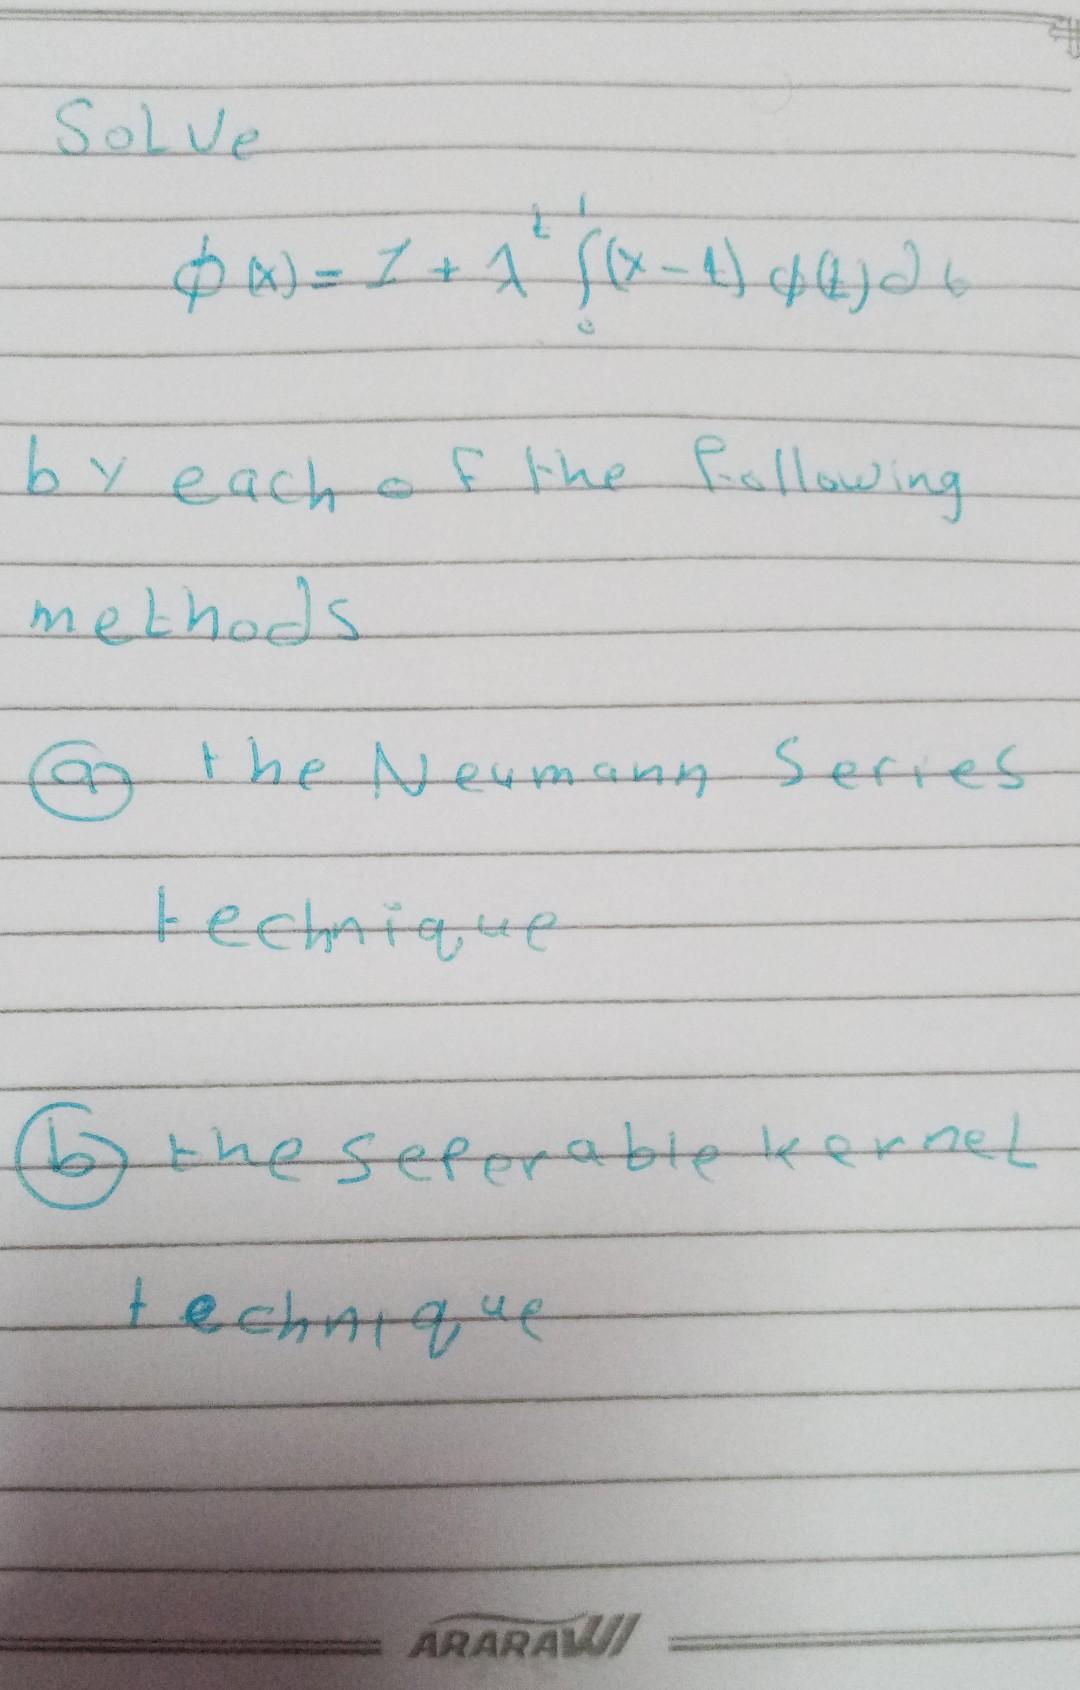 Solve
ϕ(x) = 1 + λ² ∫₀¹ (x - t) ϕ(t) dt
by each of the following
methods
(a) the Neumann Series
technique
(b) the seperable kernel
technique
ARARAWI